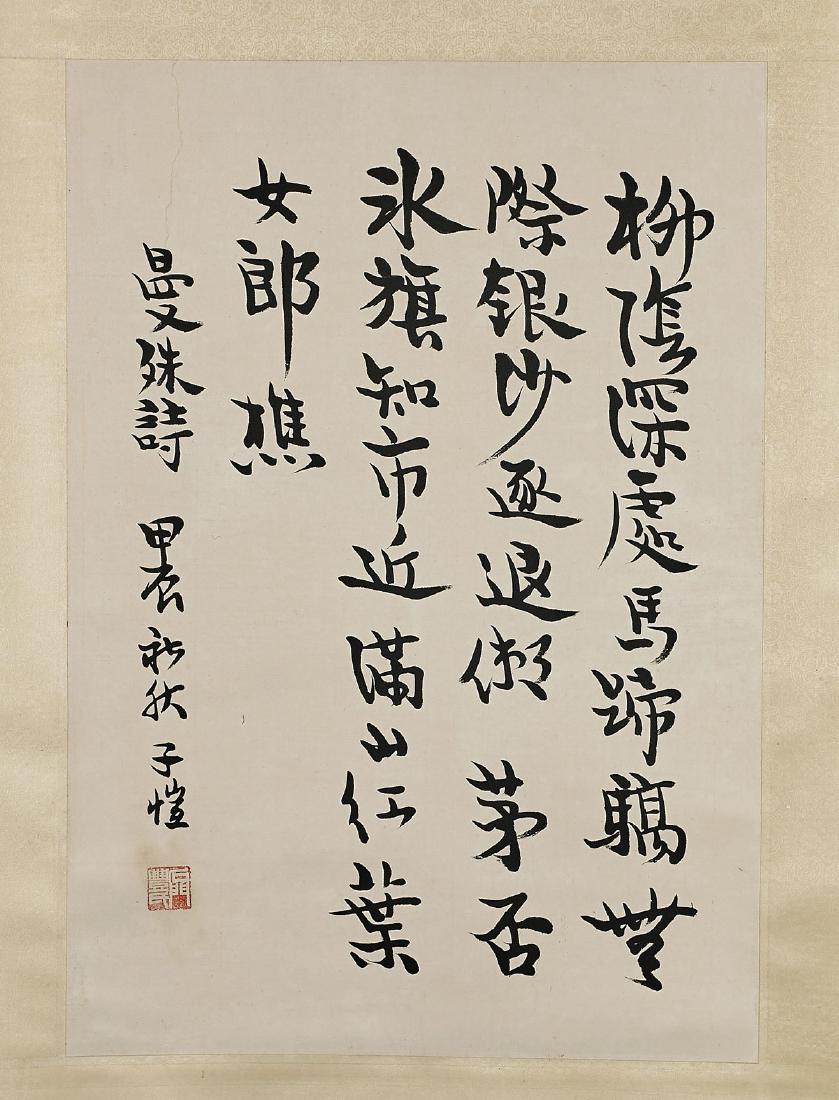 柳陰深處馬蹄驕無
際銀沙逐退潮 茅否
氷旗知市近滿山紅葉
女郎樵
曼殊詩 甲辰初秋 子愷
石門豐氏